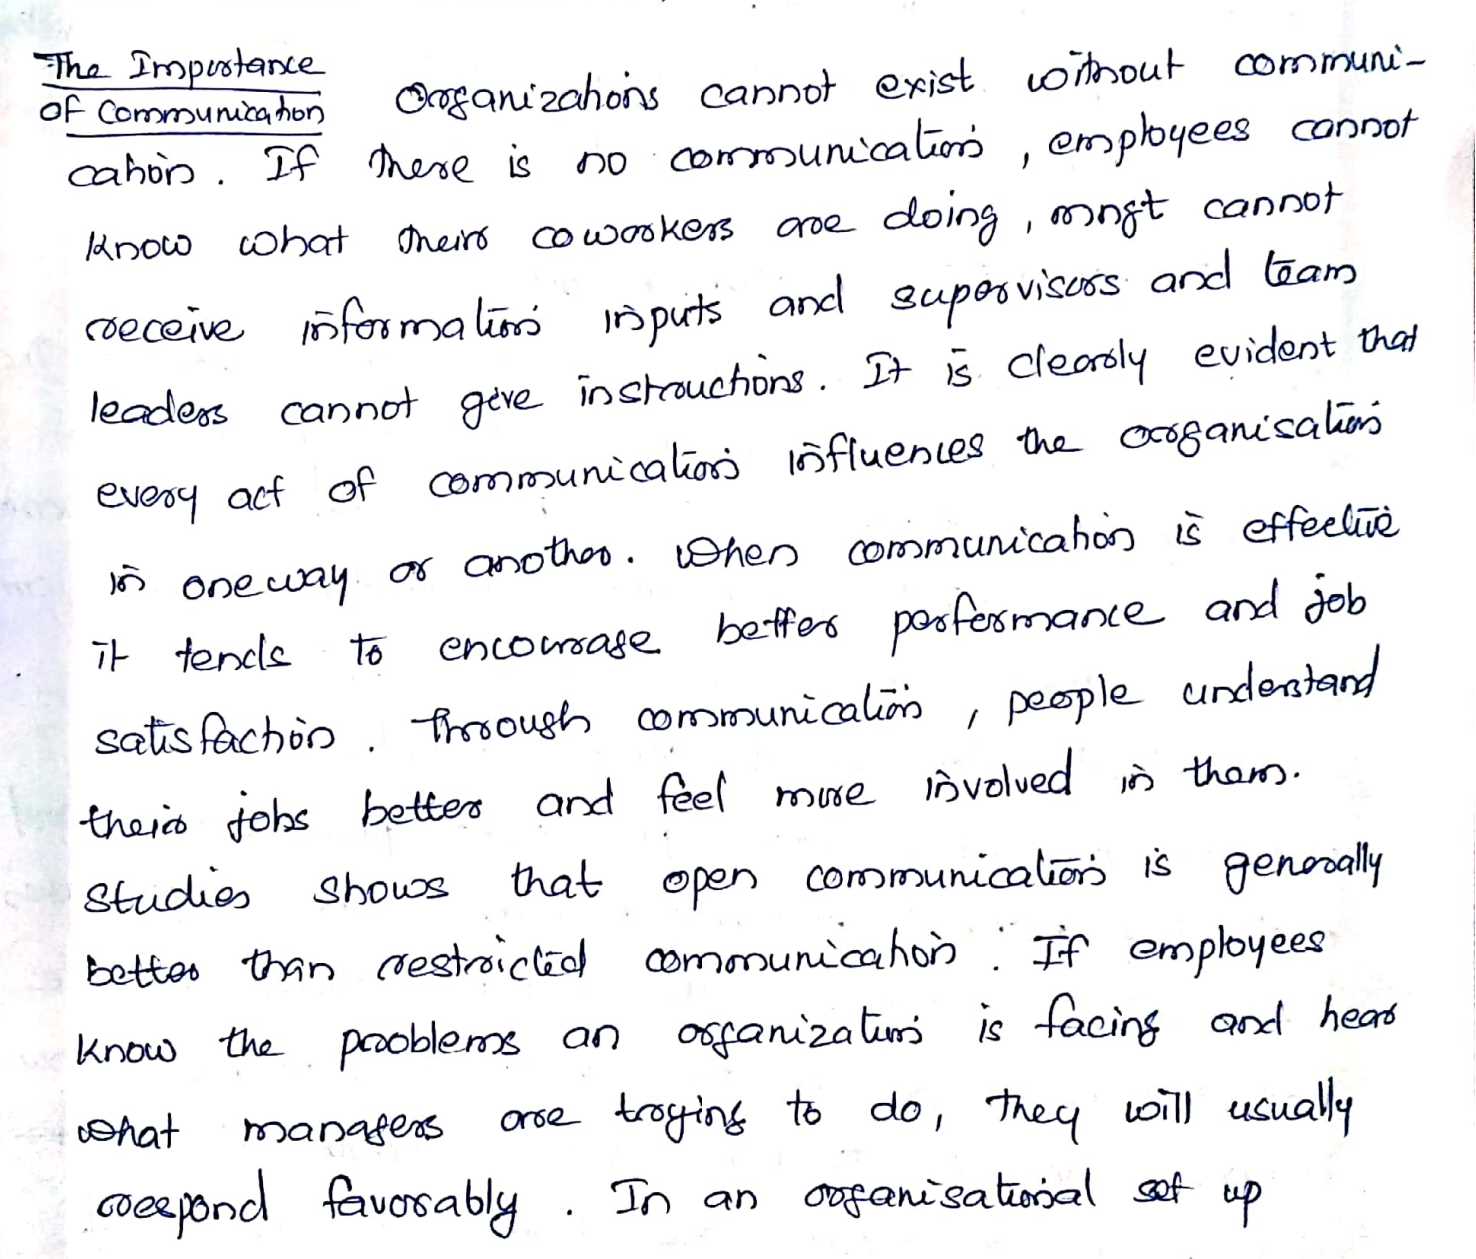 The Importance
of Communication
Organizations cannot exist without communi-
cation. If there is no communication, employees cannot
know what their coworkers are doing, mngt cannot
receive information inputs and supervisors and team
leaders cannot give instructions. It is clearly evident that
every act of communication influences the organisation
in one way or another. When communication is effective
it tends to encourage better performance and job
satisfaction. Through communication, people understand
their jobs better and feel more involved in them.
Studies shows that open communication is generally
better than restricted communication. If employees
know the problems an organization is facing and hear
what managers are trying to do, they will usually
respond favorably. In an organisational set up